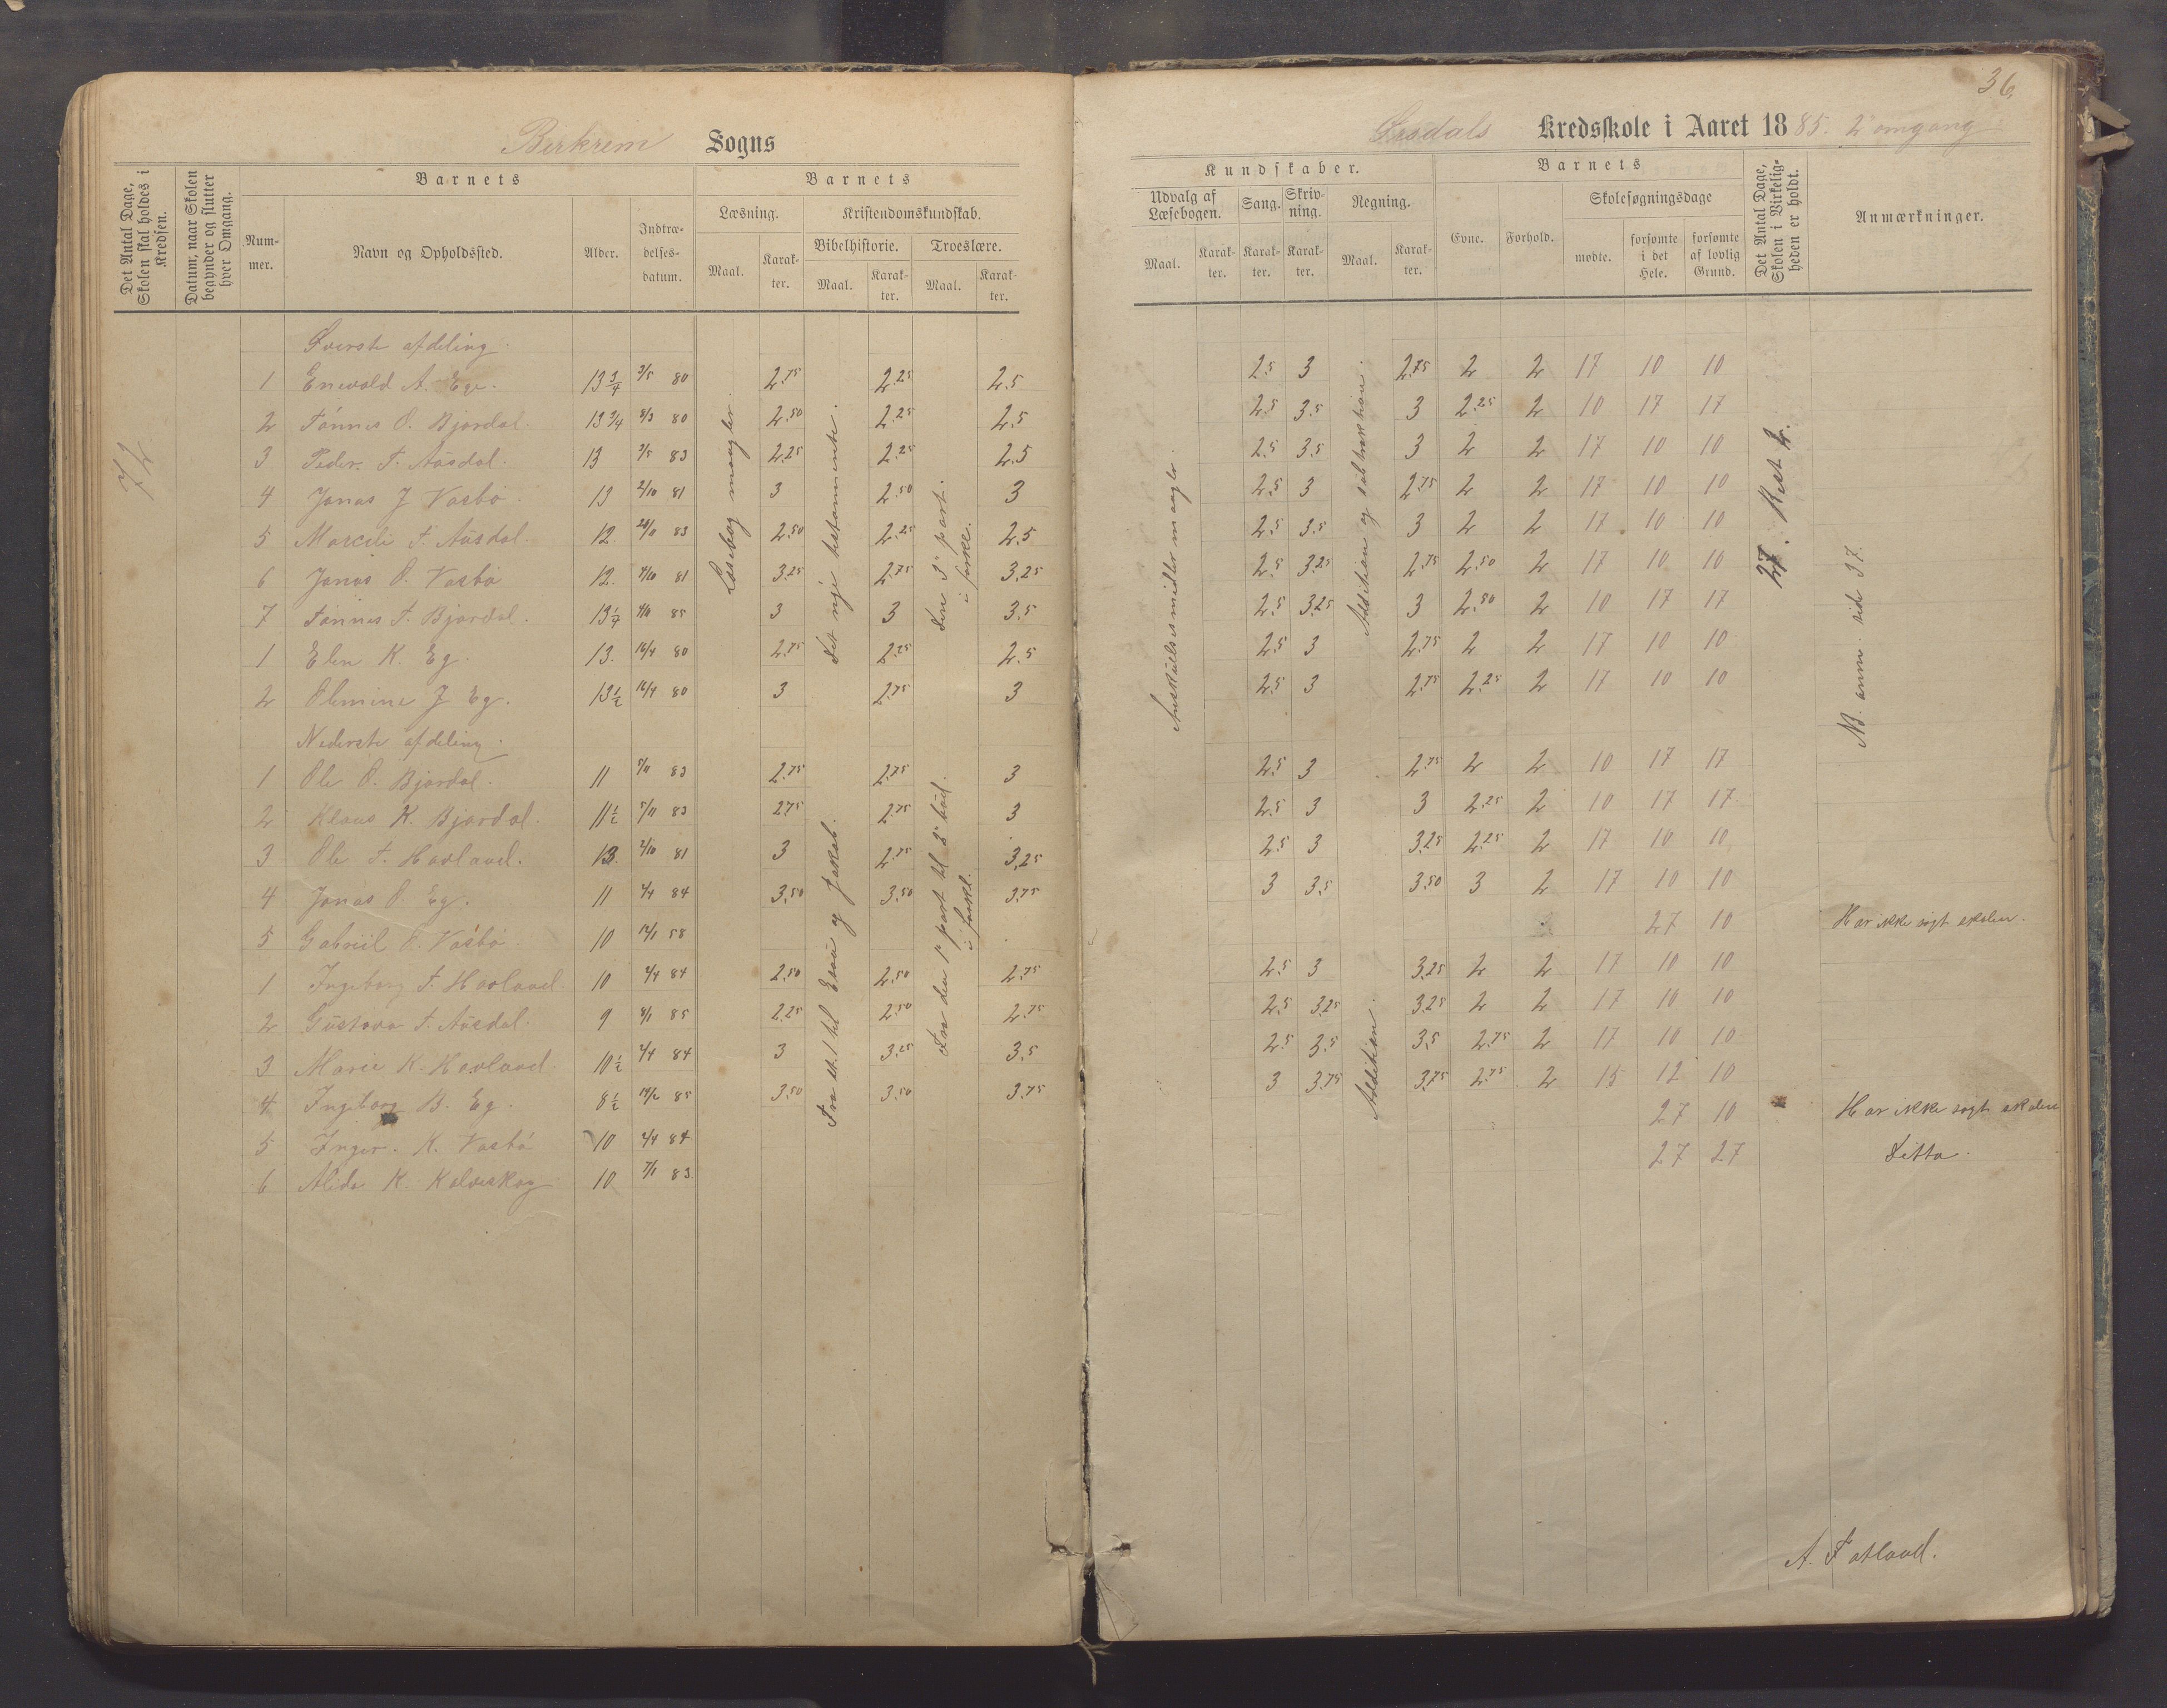 Birkrem Sogns
Det Antal Dage, Skolen skal holdes i Kredsen.
Datum, naar Skolen begynder og slutter hver Omgang.
Barnets
Nummer.
Navn og Opholdssted.
Alder.
Indtrædelsesdatum.
Barnets
Læsning.
Kristendomskundskab.
Bibelhistorie.
Troeslære.
Maal.
Karakter.
Maal.
Karakter.
Maal.
Karakter.
72
Øverste afdeling.
1 Enevald A. Ege. 13 3/4 3/5 80 2.75 2.25 2.5
2 Tønnes O. Bjordal. 13 3/4 8/3 80 2.50 2.25 2.5
3 Peder. T. Aüsdal. 13 3/5 83 2.25 2.25 2.5
4 Jonas J Vasbø. 13 2/10 81 3 2.50 3
5 Marceli T. Aüsdal. 12. 83 2.50 2.25 2.5
6 Jonas O. Vasbø 12. 81 3.25 2.75 3.25
7 Tønnes T. Bjordal. 13 1/4 85 3 3 3.5
1 Elen K. Eg. 13. 16/4 80 2.75 2.25 2.5
2 Olemine J Eg. 13 1/2 16/4 80 3 2.75 3
Nederste afdeling.
1 Ole O. Bjordal. 11 5/11 83 2.75 2.75 3
2 Klaus K. Bjordal. 11 1/2 5/11 83 2.75 2.75 3
3 Ole T. Havland. 13. 2/10 81 3 2.75 3,25
4 Jonas O. Eg. 11 2/4 84 3,50 3.50 3.75
5 Gabriil O. Vasbø 10 12/1 58
1 Ingeborg T. Havland. 10 2/4 84 2.50 2.50 2.75
2 Güstava T. Aüsdal. 9 8/1 85 2.25 2.50 2.75
3 Marie K. Havland 10 1/2 2/4 84 3 3.25 3.5
4 Ingeborg B. Eg. 8 1/2 85 3.50 3.50 3.75
5 Inger. K. Vasbø 10 2/4 84
6 Alida K. Kalveskog 10 7/1 83
Læsebog mangler.
Det nye testamente.
Den 3e part.
i forkl.
Fra st. 1 til Esaü og Jakob.
Fra den 1e part til 3e büd.
i forkl.
36,
Ørsdals Kredsskole i Aaret 1885. 2 omgang
Kundskaber.
Udvalg af Læsebogen.
Sang.
Skrivning.
Regning.
Maal.
Karakter.
Karakter.
Karakter.
Maal.
Karakter.
Barnets
Evne.
Forhold.
Skolesøgningsdage
mødte.
forsømte i det Hele.
forsømte af lovlig Grund.
Det Antal Dage, Skolen i Virkeligheden er holdt.
Anmærkninger.
2.5 3 2.75 2 2 17 10 10
2.5 3.5 3 2.25 2 10 17 17
2.5 3.5 3 2 2 17 10 10
2.5 3 2.75 2 2 17 10 10
2.5 3.5 3 2 2 17 10 10
2.5 3.25 2.75 2.50 2 17 10 10
2.5 3.25 3 2.50 2 10 17 17
2.5 3 2.75 2 2 17 10 10
2.5 3 2.75 2.25 2 17 10 10
2.5 3 2.75 2 2 10 17 17
2.5 3 3 2.25 2 10 17 17.
2.5 3 3.25 2.25 2 17 10 10
3 3.5 3.50 3 2 17 10 10
27 10 Har ikke søgt skolen.
2.5 3 3.25 2 2 17 10 10
2.5 3.25 3.25 2 2 17 10 10
2.5 3.5 3.5 2.75 2 17 10 10
3 3.75 3.75 2.75 2 15 12 10
27 10 Har ikke søgt skolen
27 27 Ditto.
Anskuelsesmidler mangler.
Addition og subtraktion.
Addition.
27. Rest 2.
NB. anm. side 37.
A. Fatland.